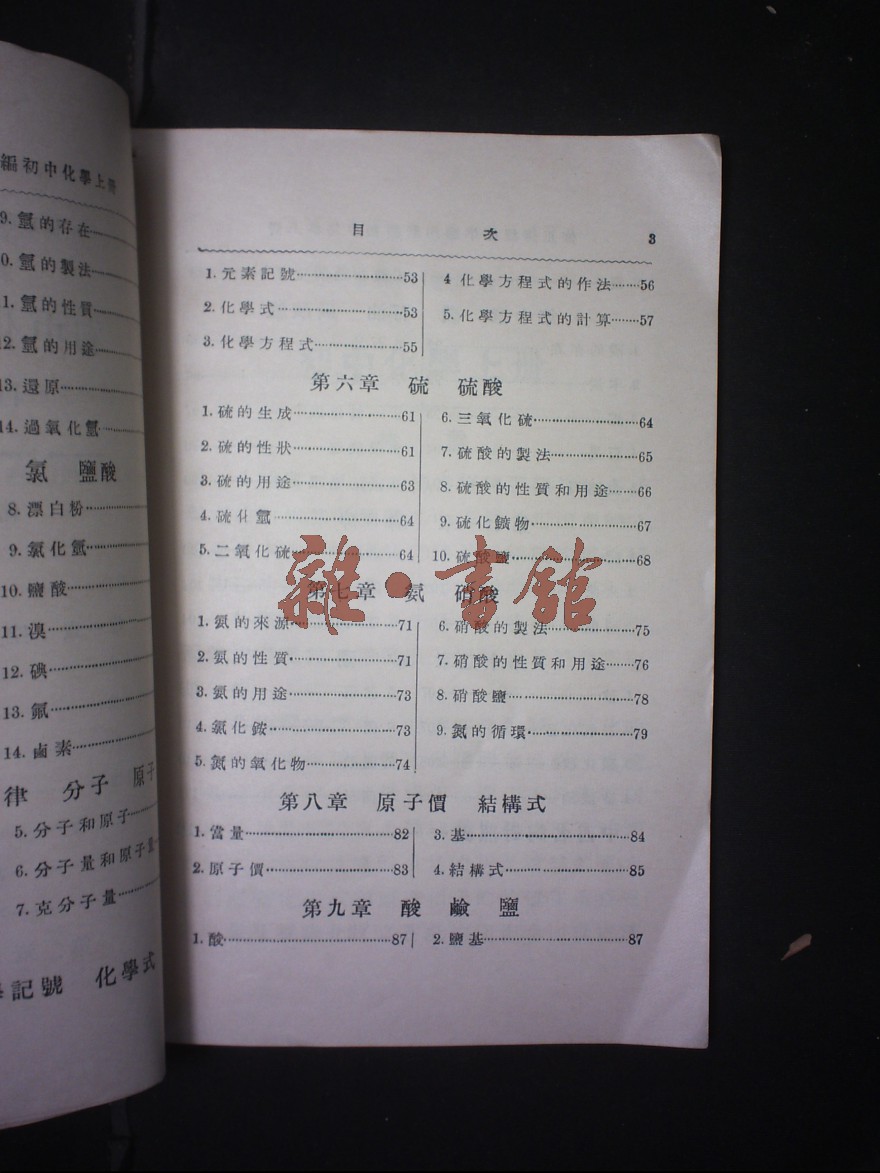 編初中化學上冊
9. 氫的存在
0. 氫的製法
1. 氫的性質
12. 氫的用途
13. 還原
14. 過氧化氫
氯 鹽酸
8. 漂白粉
9. 氯化氫
10. 鹽酸
11. 溴
12. 碘
13. 氟
14. 鹵素
律 分子 原子
5. 分子和原子
6. 分子量和原子量
7. 克分子量
記號 化學式
目 次 3
1. 元素記號 53
2. 化學式 53
3. 化學方程式 55
4 化學方程式的作法 56
5. 化學方程式的計算 57
第六章 硫 硫酸
1. 硫的生成 61
2. 硫的性狀 61
3. 硫的用途 63
4. 硫化氫 64
5. 二氧化硫 64
6. 三氧化硫 64
7. 硫酸的製法 65
8. 硫酸的性質和用途 66
9. 硫化鑛物 67
10. 硫酸鹽 68
雜·書館
第七章 氨 硝酸
1. 氨的來源 71
2. 氨的性質 71
3. 氨的用途 73
4. 氯化銨 73
5. 氮的氧化物 74
6. 硝酸的製法 75
7. 硝酸的性質和用途 76
8. 硝酸鹽 78
9. 氮的循環 79
第八章 原子價 結構式
1. 當量 82
2. 原子價 83
3. 基 84
4. 結構式 85
第九章 酸 鹼 鹽
1. 酸 87
2. 鹽基 87